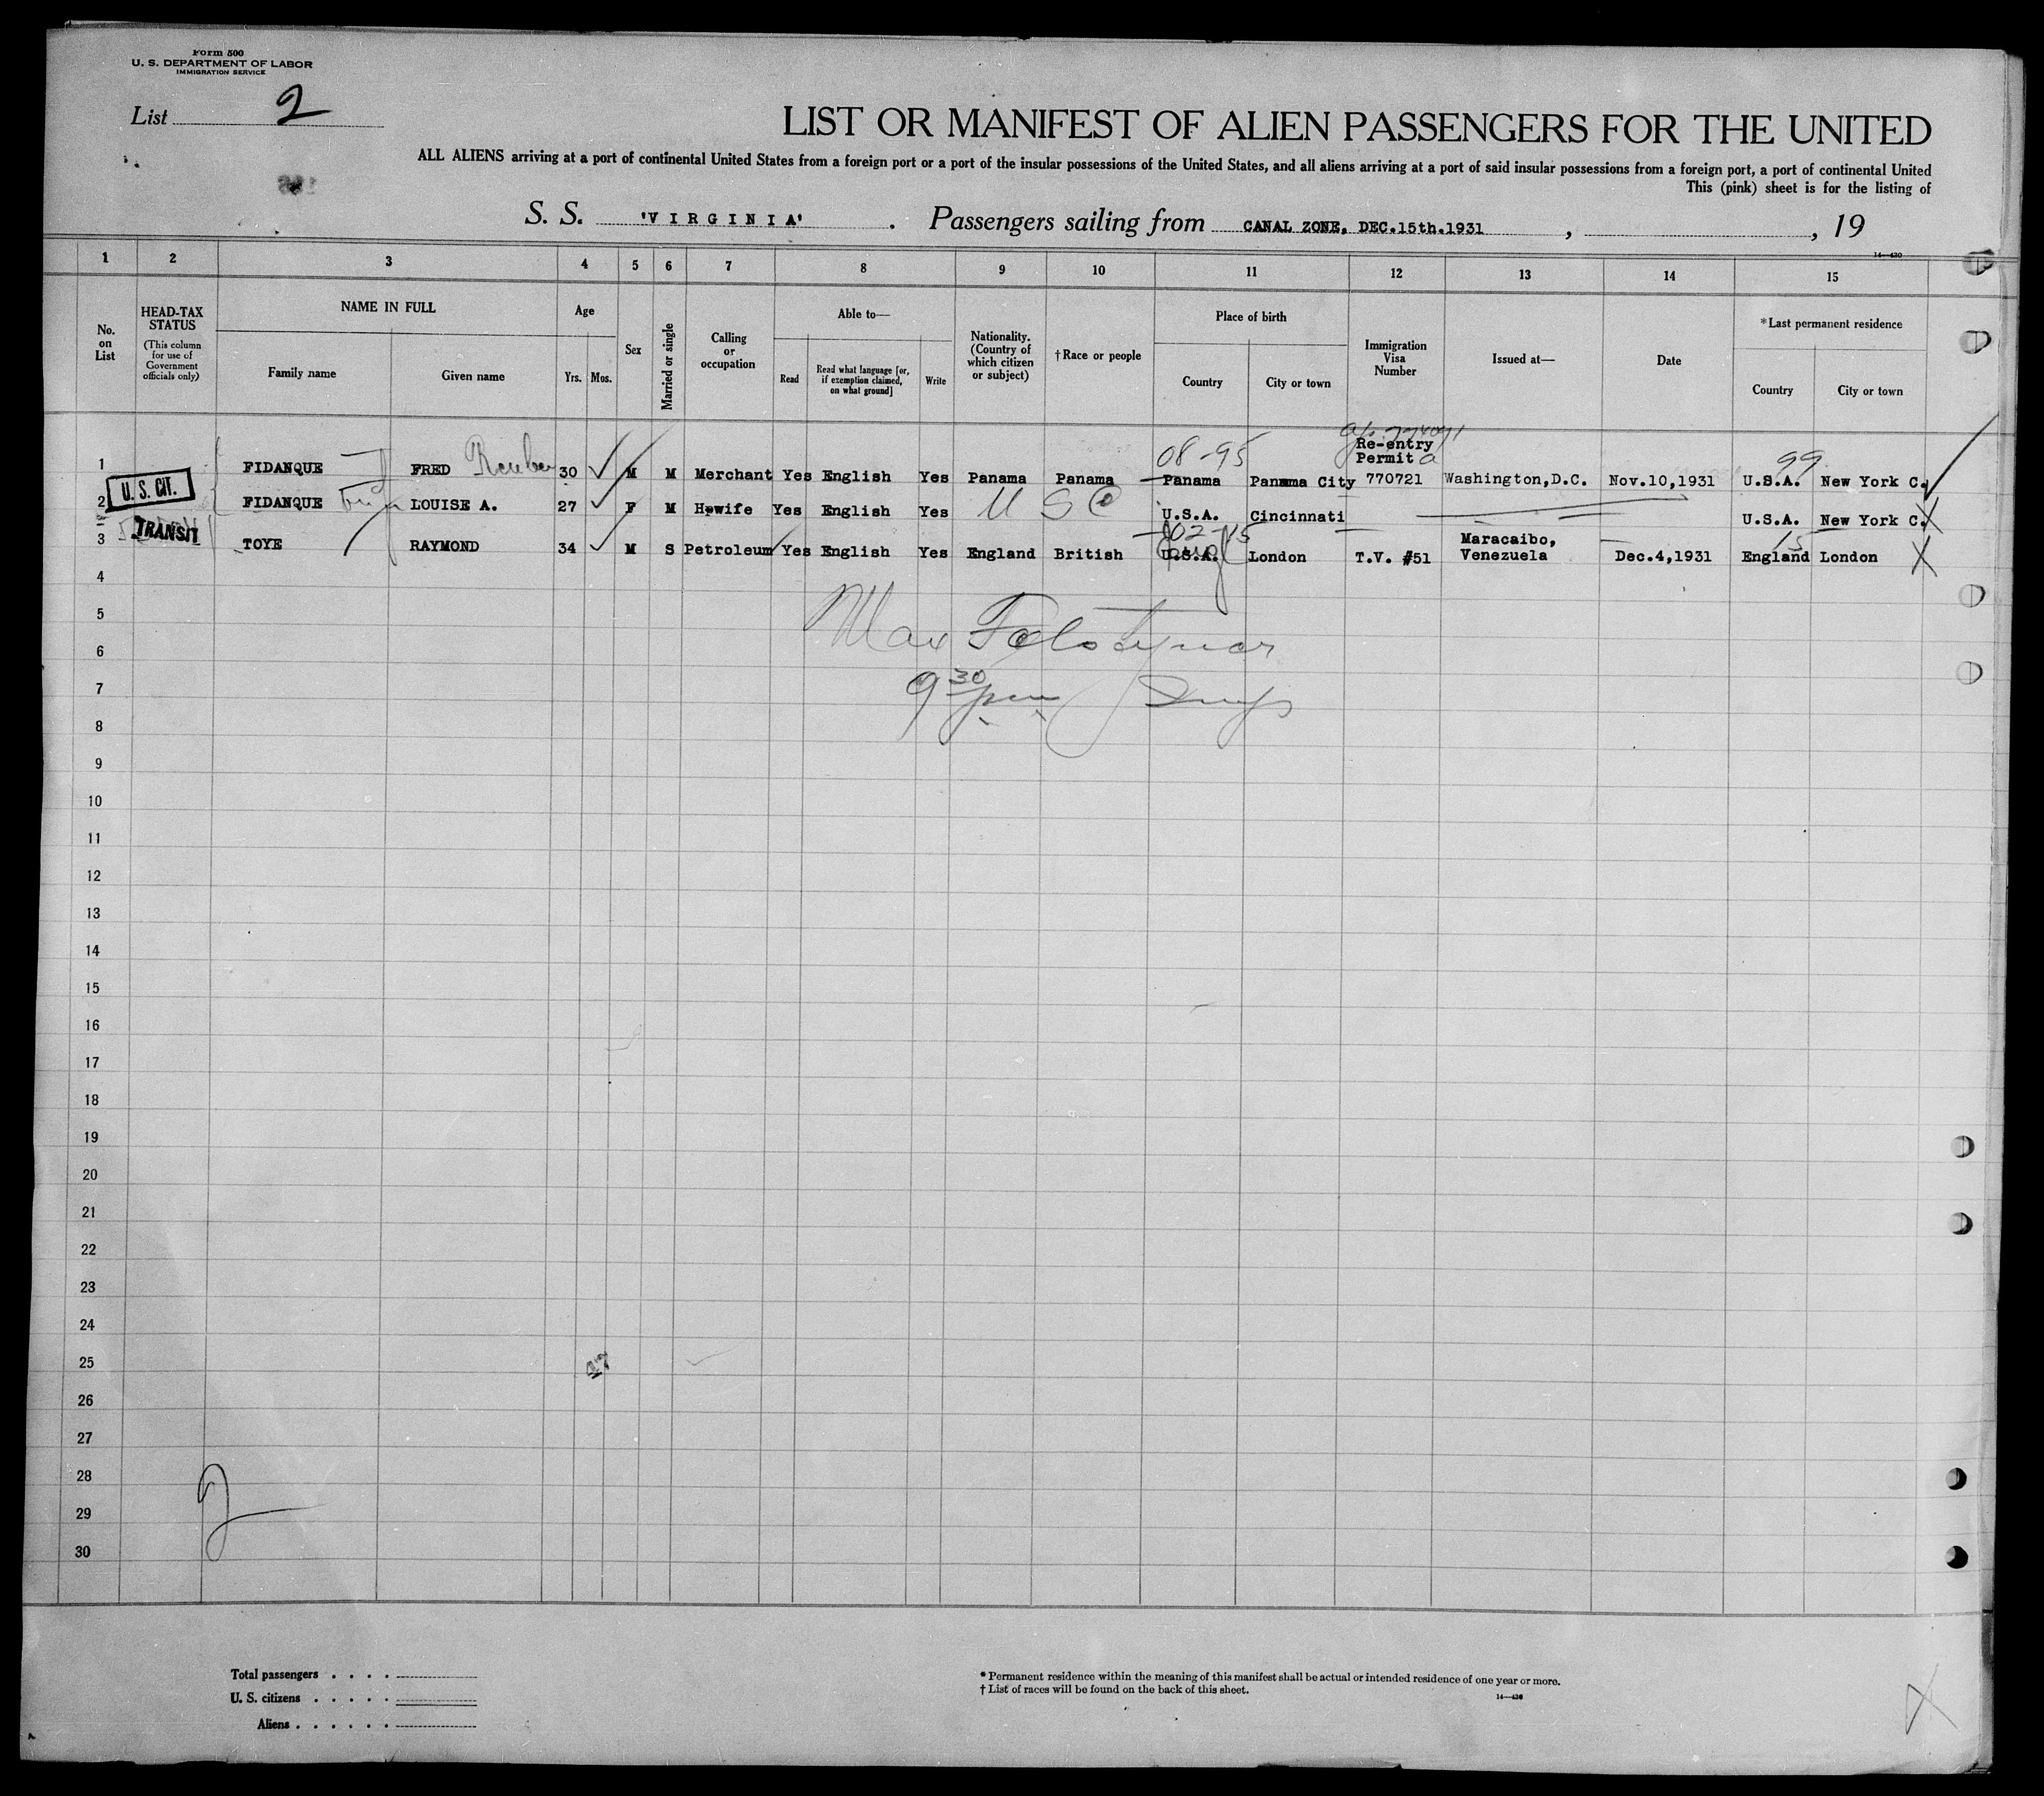 Form 500
U. S. DEPARTMENT OF LABOR
IMMIGRATION SERVICE
List 2
LIST OR MANIFEST OF ALIEN PASSENGERS FOR THE UNITED
ALL ALIENS arriving at a port of continental United States from a foreign port or a port of the insular possessions of the United States, and all aliens arriving at a port of said insular possessions from a foreign port, a port of continental United
This (pink) sheet is for the listing of
S. S. 'VIRGINIA' . Passengers sailing from CANAL ZONE, DEC.15th.1931 , , 19
14—430
1 2 3 4 5 6 7 8 9 10 11 12 13 14 15
No. on List
HEAD-TAX STATUS
(This column for use of Government officials only)
NAME IN FULL
Family name Given name
Age
Yrs. Mos.
Sex
Married or single
Calling or occupation
Able to—
Read
Read what language [or, if exemption claimed, on what ground]
Write
Nationality. (Country of which citizen or subject)
†Race or people
Place of birth
Country City or town
Immigration Visa Number
Issued at—
Date
*Last permanent residence
Country City or town
1 FIDANQUE FRED Reuben 30 M M Merchant Yes English Yes Panama Panama 08-95 Panama Panama City Re-entry Permit 770721 Washington,D.C. Nov.10,1931 99 U.S.A. New York C.
U. S. CIT.
2 FIDANQUE LOUISE A. 27 F M H.wife Yes English Yes U S C U.S.A. Cincinnati U.S.A. New York C.
TRANSIT
3 TOYE RAYMOND 34 M S Petroleum Yes English Yes England British U.S.A. London T.V. #51 Maracaibo, Venezuela Dec.4,1931 15 England London
4
5
Max
6
7
9 30 pm
8
9
10
11
12
13
14
15
16
17
18
19
20
21
22
23
24
25
26
27
28
29
30
2
Total passengers
U. S. citizens
Aliens
* Permanent residence within the meaning of this manifest shall be actual or intended residence of one year or more.
† List of races will be found on the back of this sheet.
14—430